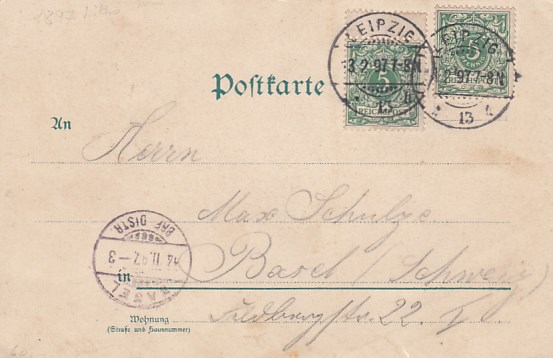 1897 Lith
LEIPZIG
13.2.97.7-8N
13
5
REICHSPOST
LEIPZIG
2.97.7-8N
13
5
Postkarte
An
Herrn
Max Schulze
in Basel (Schweiz)
Feldbergstr. 22. I.
Wohnung
(Straße und Hausnummer)
BASEL
14.II.97.-3
BRF. DISTR.